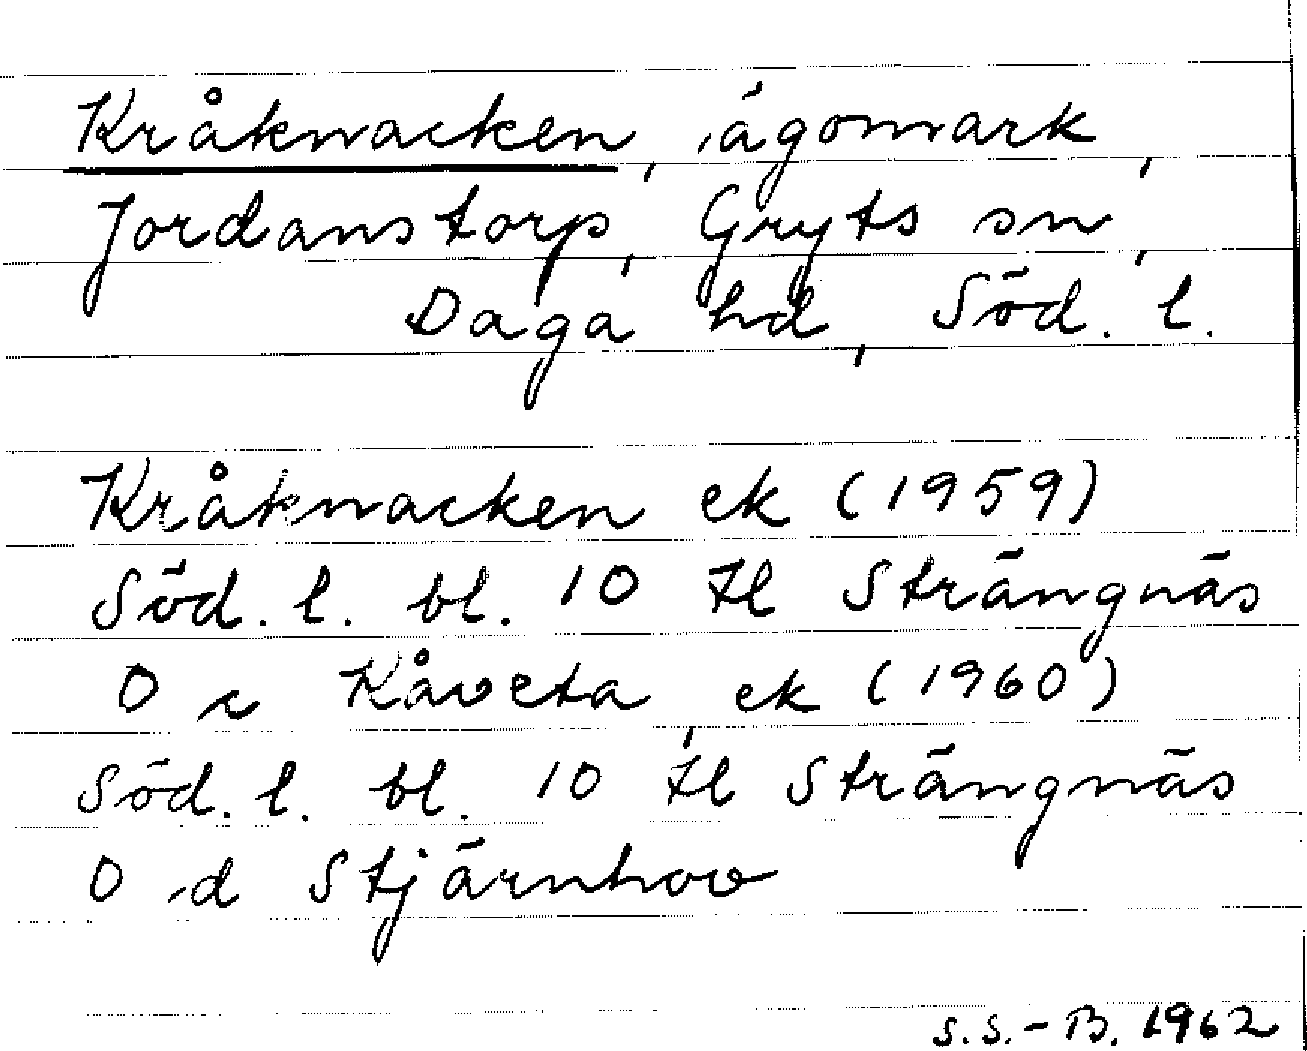 Kråknacken, ägomark,
Jordanstorp, Gryts sn,
Daga hd, Söd. l.
Kråknacken ek (1959)
Söd. l. bl. 10 Il Strängnäs
0 c Kåveta, ek (1960)
Söd. l. bl. 10 Il Strängnäs
0 d Stjärnhov
S.S.-B. 1962